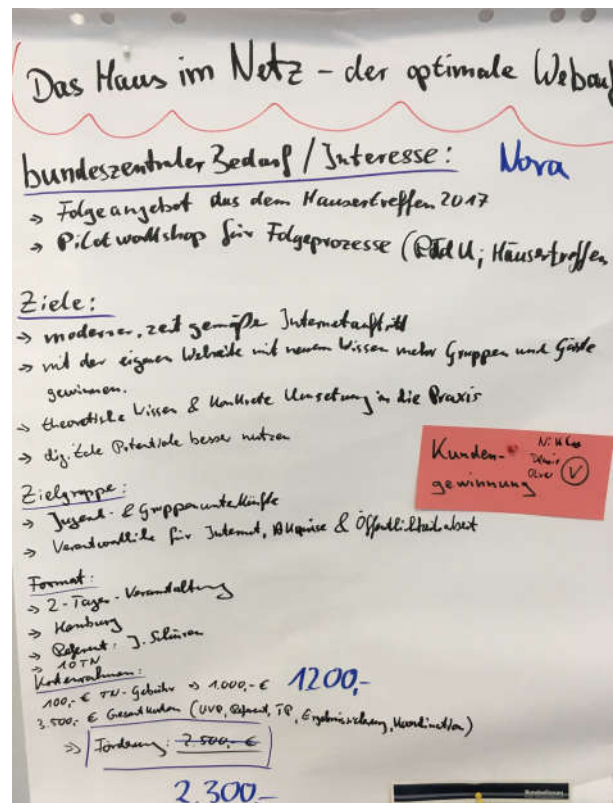 Das Haus im Netz – der optimale Webauf
bundeszentraler Bedarf / Interesse: Nora
→ Folgeangebot aus dem Häusertreffen 2017
→ Pilotworkshop für Folgeprozesse (PädU; Häusertreffen
Ziele:
→ moderner, zeitgemäße Internetauftritt
→ mit der eigenen Webseite mit neuem Wissen mehr Gruppen und Gäste
gewinnen.
→ theoretische Wissen & konkrete Umsetzung in die Praxis
→ digitale Potentiale besser nutzen
Kunden-
gewinnung
Zielgruppe:
→ Jugend- & Gruppenunterkünfte
→ Verantwortliche für Internet, Akquise & Öffentlichkeitsarbeit
Format:
→ 2-Tages-Veranstaltung
→ Hamburg
→ Referent: J.
→ 10 TN
Kostenrahmen:
100,- € TN-Gebühr → 1.000,- € 1200,-
3.500,- € Gesamtkosten (UVP, Referent, TP, Ergebnissicherung, Koordination)
⇒ Förderung: 2.500,- €
2.300,-